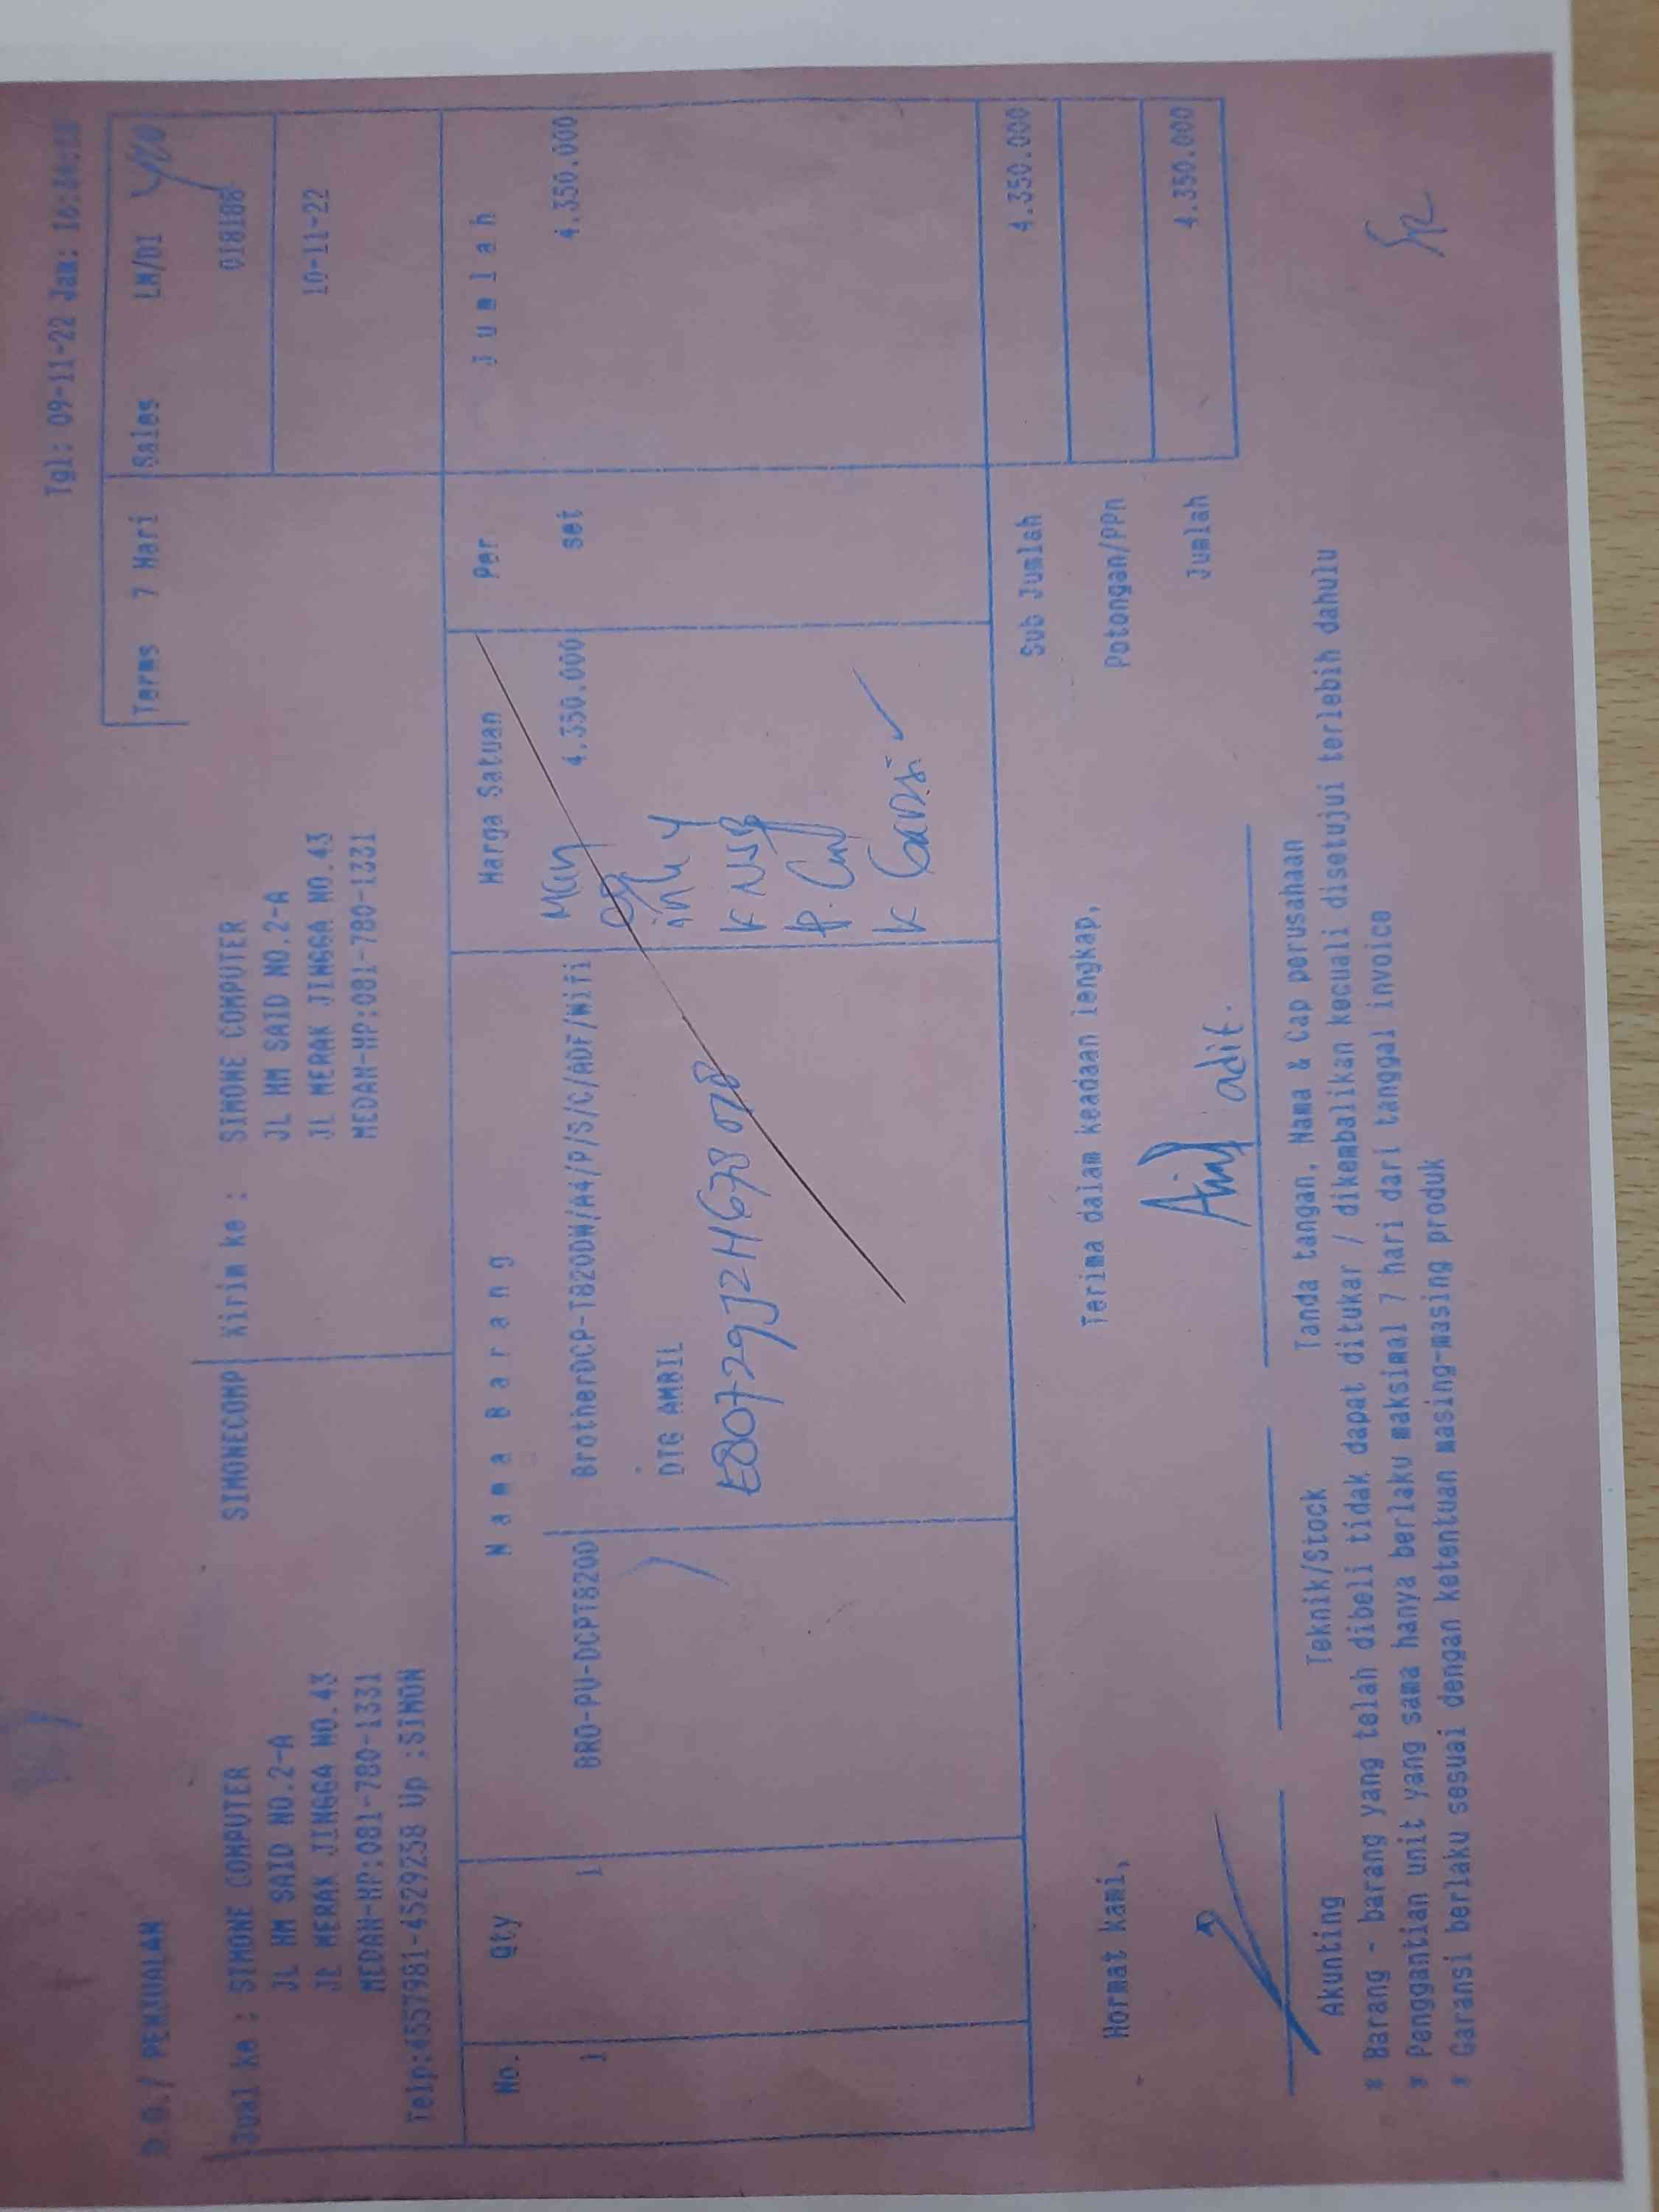 Tgl: 09-11-22 Jam:
D.O./ PENJUALAN
Terms 7 Hari Sales LM/DI
018188
10-11-22
Jual ke : SIMONE COMPUTER SIMONECOMP Kirim ke : SIMONE COMPUTER
JL HM SAID NO.2-A JL HM SAID NO.2-A
JL MERAK JINGGA NO.43 JL MERAK JINGGA NO.43
MEDAN-HP:081-780-1331 MEDAN-HP:081-780-1331
Telp:4557981-4529258 Up :SIMON
No. Qty Nama Barang Harga Satuan Per Jumlah
1 1 BRO-PU-DCPT820D BrotherDCP-T820DW/A4/P/S/C/ADF/Wifi 4.350.000 set 4.350.000
DTG AMBIL
E80729J2H678078
K Garansi
Sub Jumlah 4.350.000
Potongan/PPn
Jumlah 4.350.000
Hormat kami, Terima dalam keadaan lengkap,
adit.
Akunting Teknik/Stock Tanda tangan, Nama & Cap perusahaan
* Barang - barang yang telah dibeli tidak dapat ditukar / dikembalikan kecuali disetujui terlebih dahulu
* Penggantian unit yang sama hanya berlaku maksimal 7 hari dari tanggal invoice
* Garansi berlaku sesuai dengan ketentuan masing-masing produk